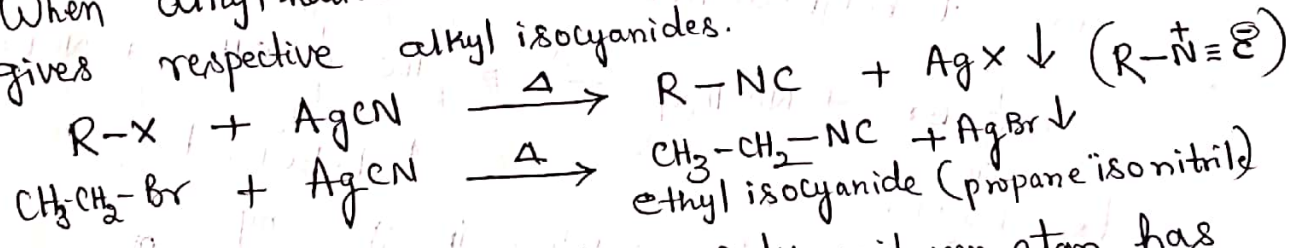 When
gives respective alkyl isocyanides.
R-X + AgCN —Δ→ R-NC + AgX ↓ (R-N⁺≡C⊖)
CH₃-CH₂-Br + AgCN —Δ→ CH₃-CH₂-NC + AgBr↓
ethyl isocyanide (propane isonitrile)
has